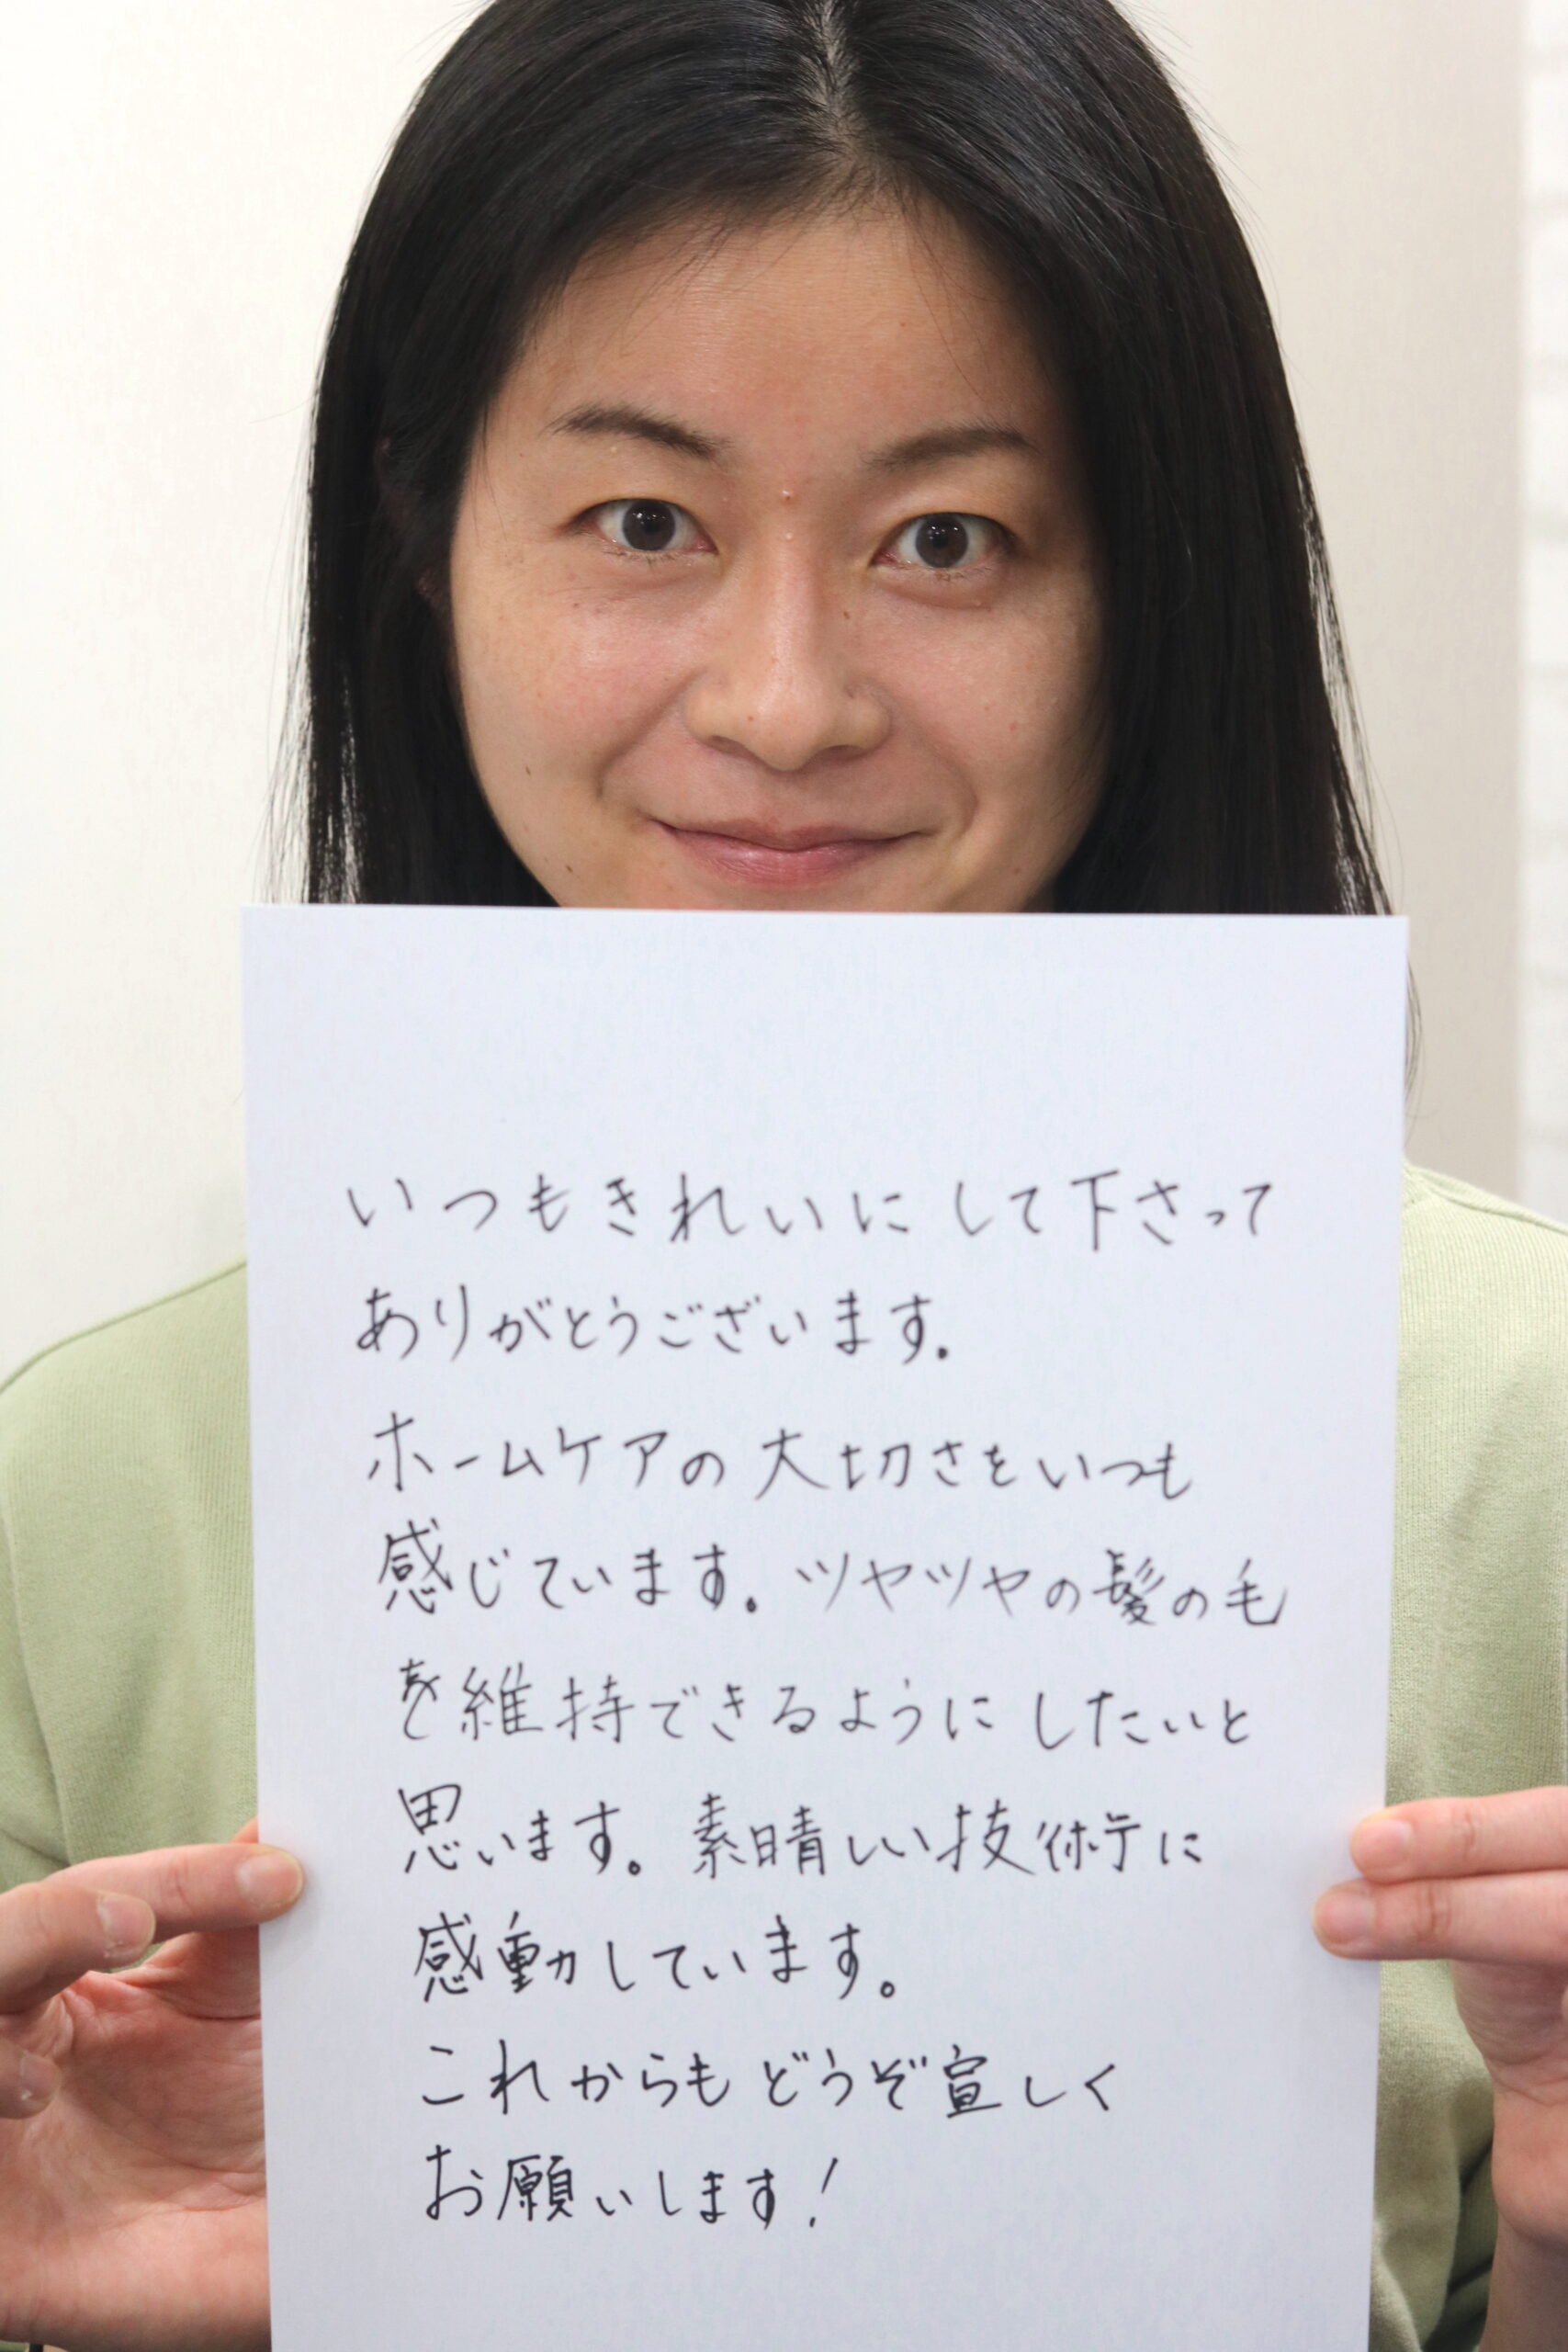 いつもきれいにして下さって
ありがとうございます。
ホームケアの大切さをいつも
感じています。ツヤツヤの髪の毛
を維持できるようにしたいと
思います。素晴しい技術に
感動しています。
これからもどうぞ宜しく
お願いします!